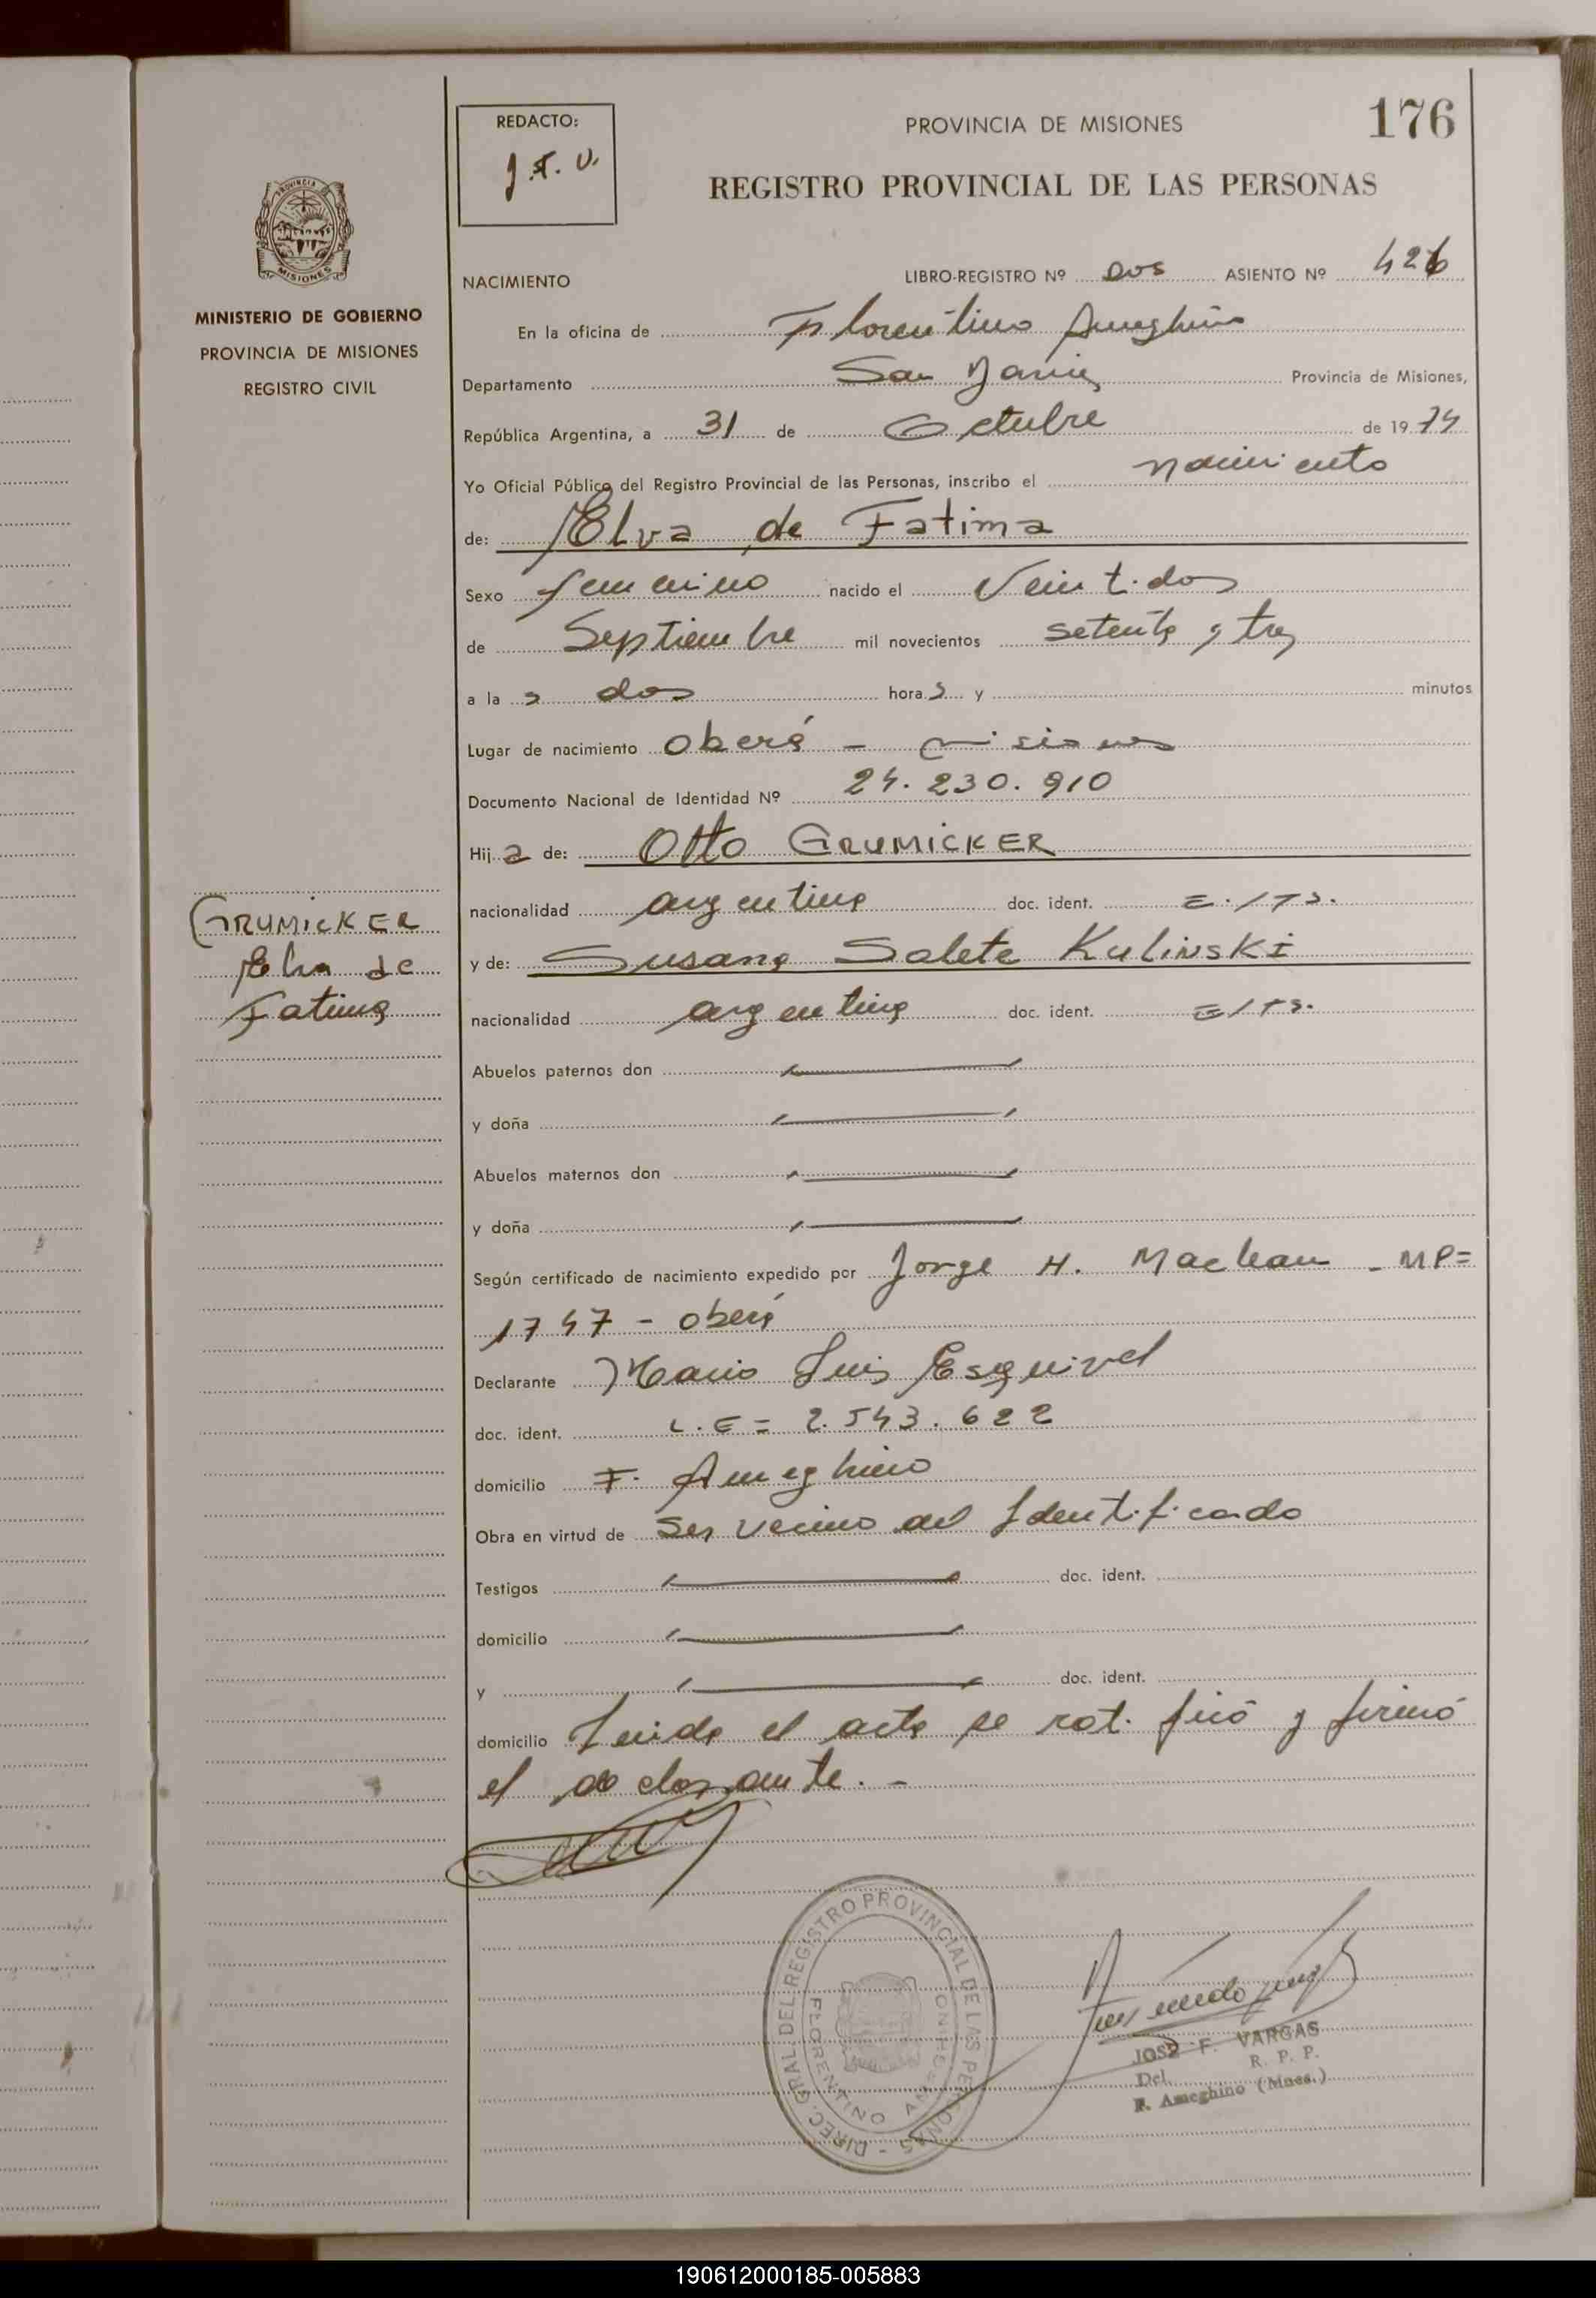 176
PROVINCIA DE MISIONES
REGISTRO PROVINCIAL DE LAS PERSONAS
REDACTO:
J.F.V.
MINISTERIO DE GOBIERNO
PROVINCIA DE MISIONES
REGISTRO CIVIL
NACIMIENTO LIBRO-REGISTRO Nº Dos ASIENTO Nº 426
En la oficina de Florentino Ameghino
Departamento San Javier Provincia de Misiones,
República Argentina, a 31 de Octubre de 1974
Yo Oficial Público del Registro Provincial de las Personas, inscribo el nacimiento
de: Elva de Fatima
Sexo femenino nacido el Veintidos
de Septiembre mil novecientos setenta y tres
a la s dos hora s y minutos
Lugar de nacimiento Oberá - Misiones
Documento Nacional de Identidad Nº 24.230.910
Hij a de: Otto GRUMICKER
nacionalidad argentina doc. ident. E./TS.
y de: Susana Salete Kulinski
nacionalidad argentina doc. ident. E/TS.
GRUMICKER
Elva de
Fatima
Abuelos paternos don
y doña
Abuelos maternos don
y doña
Según certificado de nacimiento expedido por Jorge H. Maclean - MP=
1747 - Oberá
Declarante Mario Luis Esquivel
doc. ident. L.E= 2.543.622
domicilio F. Ameghino
Obra en virtud de Ser vecino del Identificado
Testigos doc. ident.
domicilio
y doc. ident.
domicilio Leida el acta se ratificó y firmó
el declarante. -
DIREC. GRAL. DEL REGISTRO PROVINCIAL DE LAS PERSONAS -
FLORENTINO AMEGHINO
MISIONES
JOSE F. VARGAS
Del. R. P. P.
F. Ameghino (Mnes.)
190612000185-005883